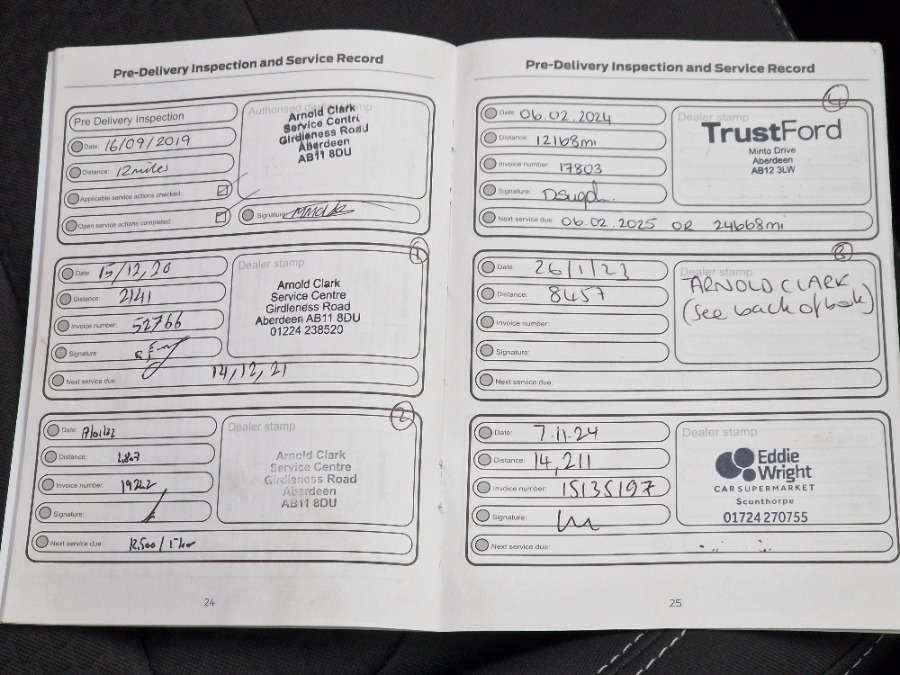 Pre-Delivery Inspection and Service Record
Pre Delivery Inspection
Date: 16/09/2019
Distance: 12miles
Applicable service actions checked:
Open service actions completed:
Authorised dealer stamp
Arnold Clark
Service Centre
Girdleness Road
Aberdeen
AB11 8DU
Signature:
1
Date: 15/12/20
Distance: 2141
Invoice number: 52766
Signature:
Next service due: 14/12/21
Dealer stamp
Arnold Clark
Service Centre
Girdleness Road
Aberdeen AB11 8DU
01224 238520
2
Date: 17/01/22
Distance:
Invoice number:
Signature:
Next service due: 12,500 /
Dealer stamp
Arnold Clark
Service Centre
Girdleness Road
Aberdeen
AB11 8DU
24
Pre-Delivery Inspection and Service Record
4
Date: 06.02.2024
Distance: 12168mi
Invoice number: 17803
Signature:
Next service due: 06.02.2025 OR 24668mi
Dealer stamp
TrustFord
Minto Drive
Aberdeen
AB12 3LW
3
Date: 26/1/23
Distance: 8457
Invoice number:
Signature:
Next service due:
Dealer stamp
ARNOLD CLARK
(see back of book)
Date: 7.11.24
Distance: 14,211
Invoice number: 15135197
Signature:
Next service due:
Dealer stamp
Eddie
Wright
CAR SUPERMARKET
Scunthorpe
01724 270755
25